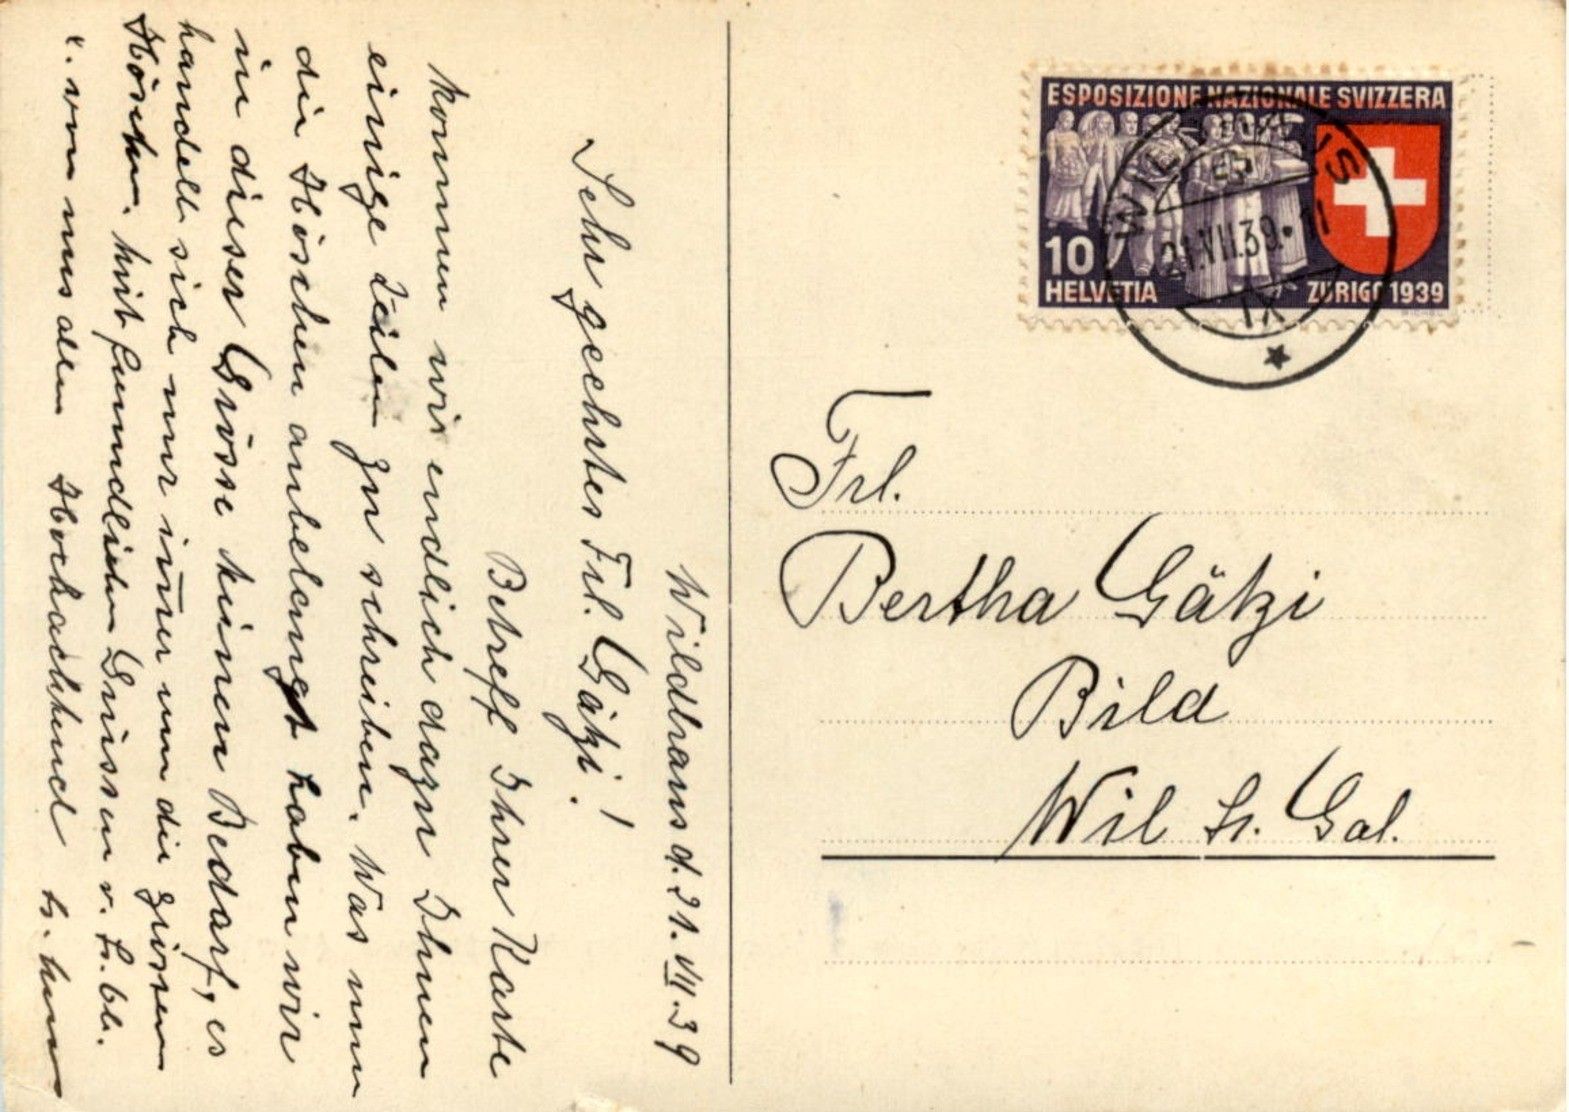 Wildhaus d. 21. VII. 39
Sehr geehrtes Frl. Gätzi!
Betreff Ihrer Karte
kommen wir endlich dazu Ihnen
einige Zeilen zu schreiben. Was nun
die Höschen anbelangt haben wir
in dieser Grösse keinen Bedarf, es
handelt sich nur im̄er um die grossen
Höschen. Mit freundlichen Grüssen v. Fr. 
v. uns allen Hochachtend Fr.
ESPOSIZIONE NAZIONALE SVIZZERA
10
HELVETIA
ZURIGO 1939
WILDHAUS
21.VII.39.
Frl.
Bertha Gätzi
Bild
Wil St. Gal.